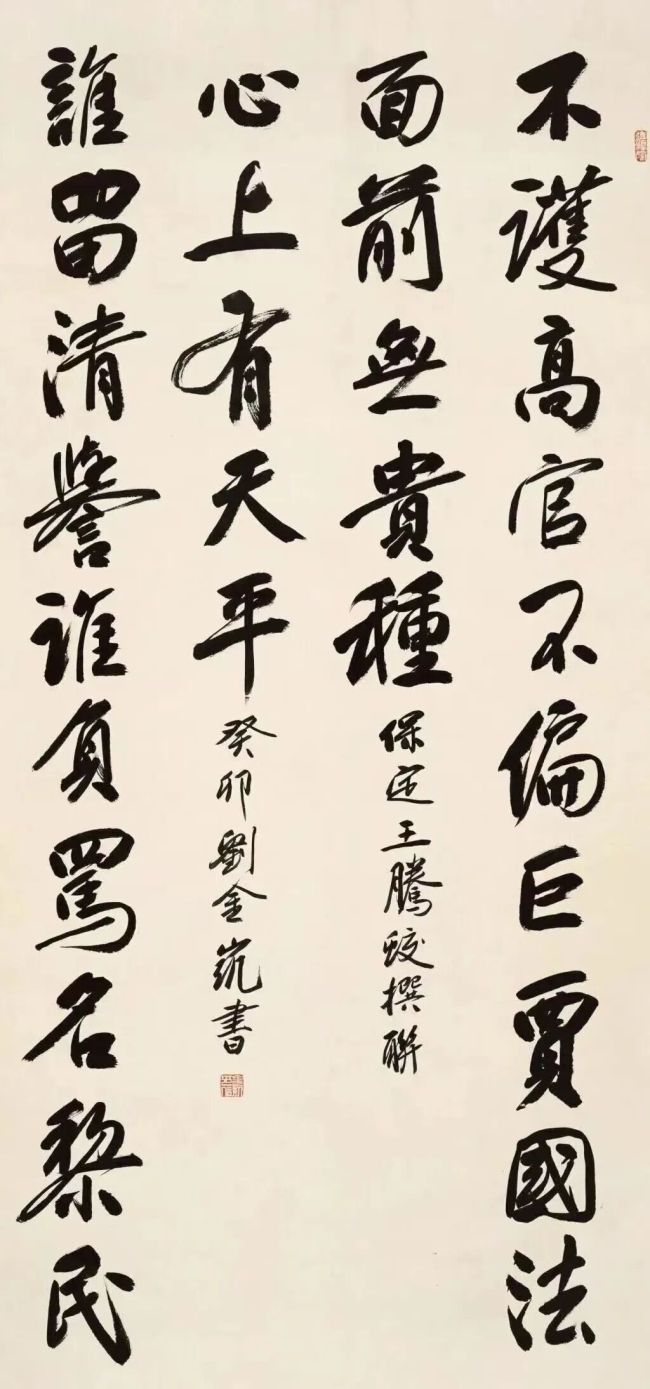 不護高官不偏巨賈國法
面前無貴種
保定王騰蛟撰聯
誰留清譽誰負罵名黎民
心上有天平
癸卯劉金凱書